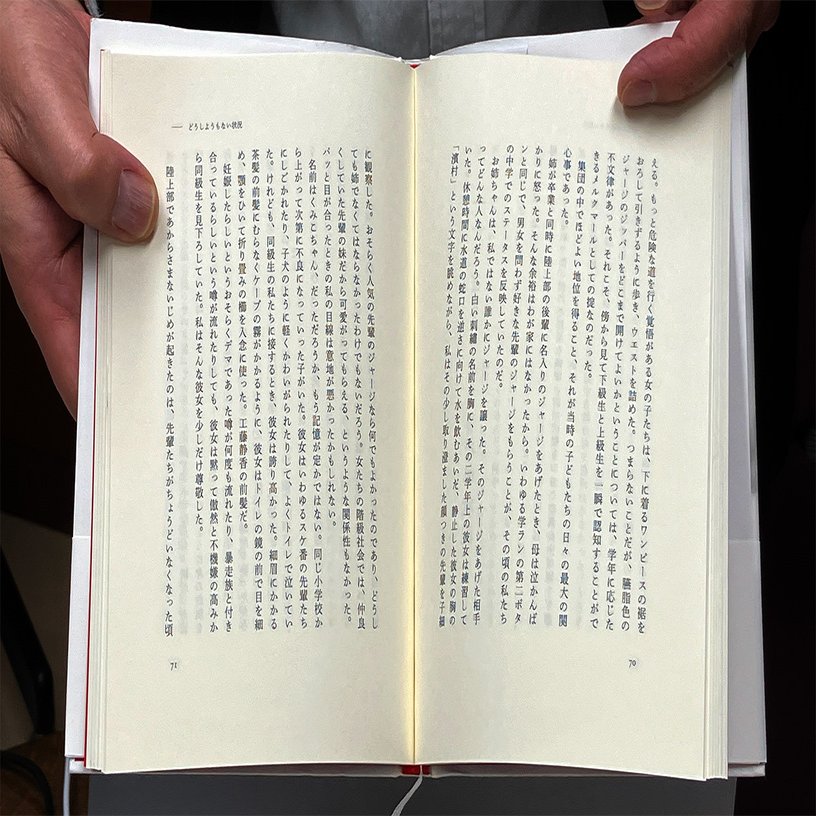 える。もっと危険な道を行く覚悟がある女の子たちは、下に着るワンピースの裾を
おろして引きずるように歩き、ウエストを詰めた。つまらないことだが、臙脂色の
ジャージのジッパーをどこまで開けてよいかということについては、学年に応じた
不文律があった。それこそ、傍から見て下級生と上級生を一瞬で認知することがで
きるメルクマールとしての掟なのだった。
集団の中でほどよい地位を得ること、それが当時の子どもたちの日々の最大の関
心事であった。
姉が卒業と同時に陸上部の後輩に名入りのジャージをあげたとき、母は泣かんば
かりに怒った。そんな余裕はわが家にはなかったから。いわゆる学ランの第二ボタ
ンと同じで、男女を問わず好きな先輩のジャージをもらうことが、その頃の私たち
の中学でのステータスを反映していたのだ。
お姉ちゃんは、私ではない誰かにジャージを譲った。そのジャージをあげた相手
ってどんな人なんだろう。白い刺繡の名前を胸に、その二学年上の彼女は練習して
いた。休憩時間に水道の蛇口を逆さに向けて水を飲むあいだ、静止した彼女の胸の
「濱村」という文字を眺めながら、私はその少し取り澄ました顔つきの先輩を子細
70
どうしようもない状況
に観察した。おそらく人気の先輩のジャージなら何でもよかったのであり、どうし
ても姉でなくてはならなかったわけでもないだろう。女たちの階級社会では、仲良
くしていた先輩の妹だから可愛がってもらえる、というような関係性もなかった。
パッと目が合ったときの私の目線は意地が悪かったかもしれない。
名前はくみこちゃん、だっただろうか、もう記憶が定かではない。同じ小学校か
ら上がって次第に不良になっていった子がいた。彼女はいわゆるスケ番の先輩たち
にしごかれたり、子犬のように軽くかわいがられたりして、よくトイレで泣いてい
た。けれども、同級生の私たちに接するとき、彼女は誇り高かった。細眉にかかる
茶髪の前髪にむらなくケープの霧がかかるように、彼女はトイレの鏡の前で目を細
め、顎をひいて折り畳みの櫛を入念に使った。工藤静香の前髪だ。
妊娠したらしいというおそらくデマであった噂が何度も流れたり、暴走族と付き
合っているらしいという噂が流れたりしても、彼女は黙って傲然と不機嫌の高みか
ら同級生を見下ろしていた。私はそんな彼女を少しだけ尊敬した。
陸上部であからさまないじめが起きたのは、先輩たちがちょうどいなくなった頃
71